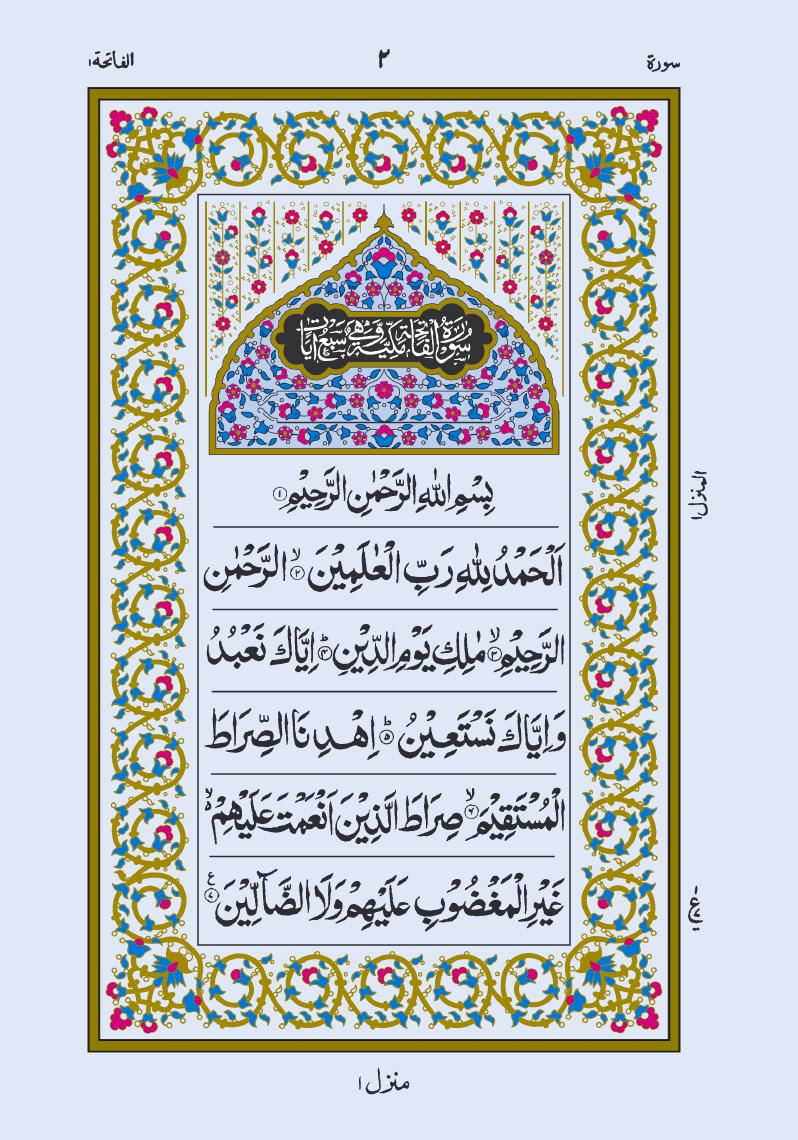 سورة ٢ الفاتحة ١
سُوْرَةُ الْفَاتِحَةِ مَكِّيَّةٌ وَّهِيَ سَبْعُ اٰيَاتٍ
بِسْمِ اللّٰهِ الرَّحْمٰنِ الرَّحِيْمِ ①
اَلْحَمْدُ لِلّٰهِ رَبِّ الْعٰلَمِيْنَ ۙ ② الرَّحْمٰنِ
الرَّحِيْمِ ۙ ③ مٰلِكِ يَوْمِ الدِّيْنِ ؕ ④ اِيَّاكَ نَعْبُدُ
وَاِيَّاكَ نَسْتَعِيْنُ ؕ ⑤ اِهْدِنَا الصِّرَاطَ
الْمُسْتَقِيْمَ ۙ ⑥ صِرَاطَ الَّذِيْنَ اَنْعَمْتَ عَلَيْهِمْ ۙ
غَيْرِ الْمَغْضُوْبِ عَلَيْهِمْ وَلَا الضَّآلِّيْنَ ⑦ ع
المنزل ١
منزل ١